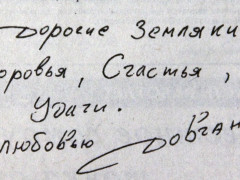 Дорогие Земляки
доровья, Счастья,
Удачи.
любовью Довган